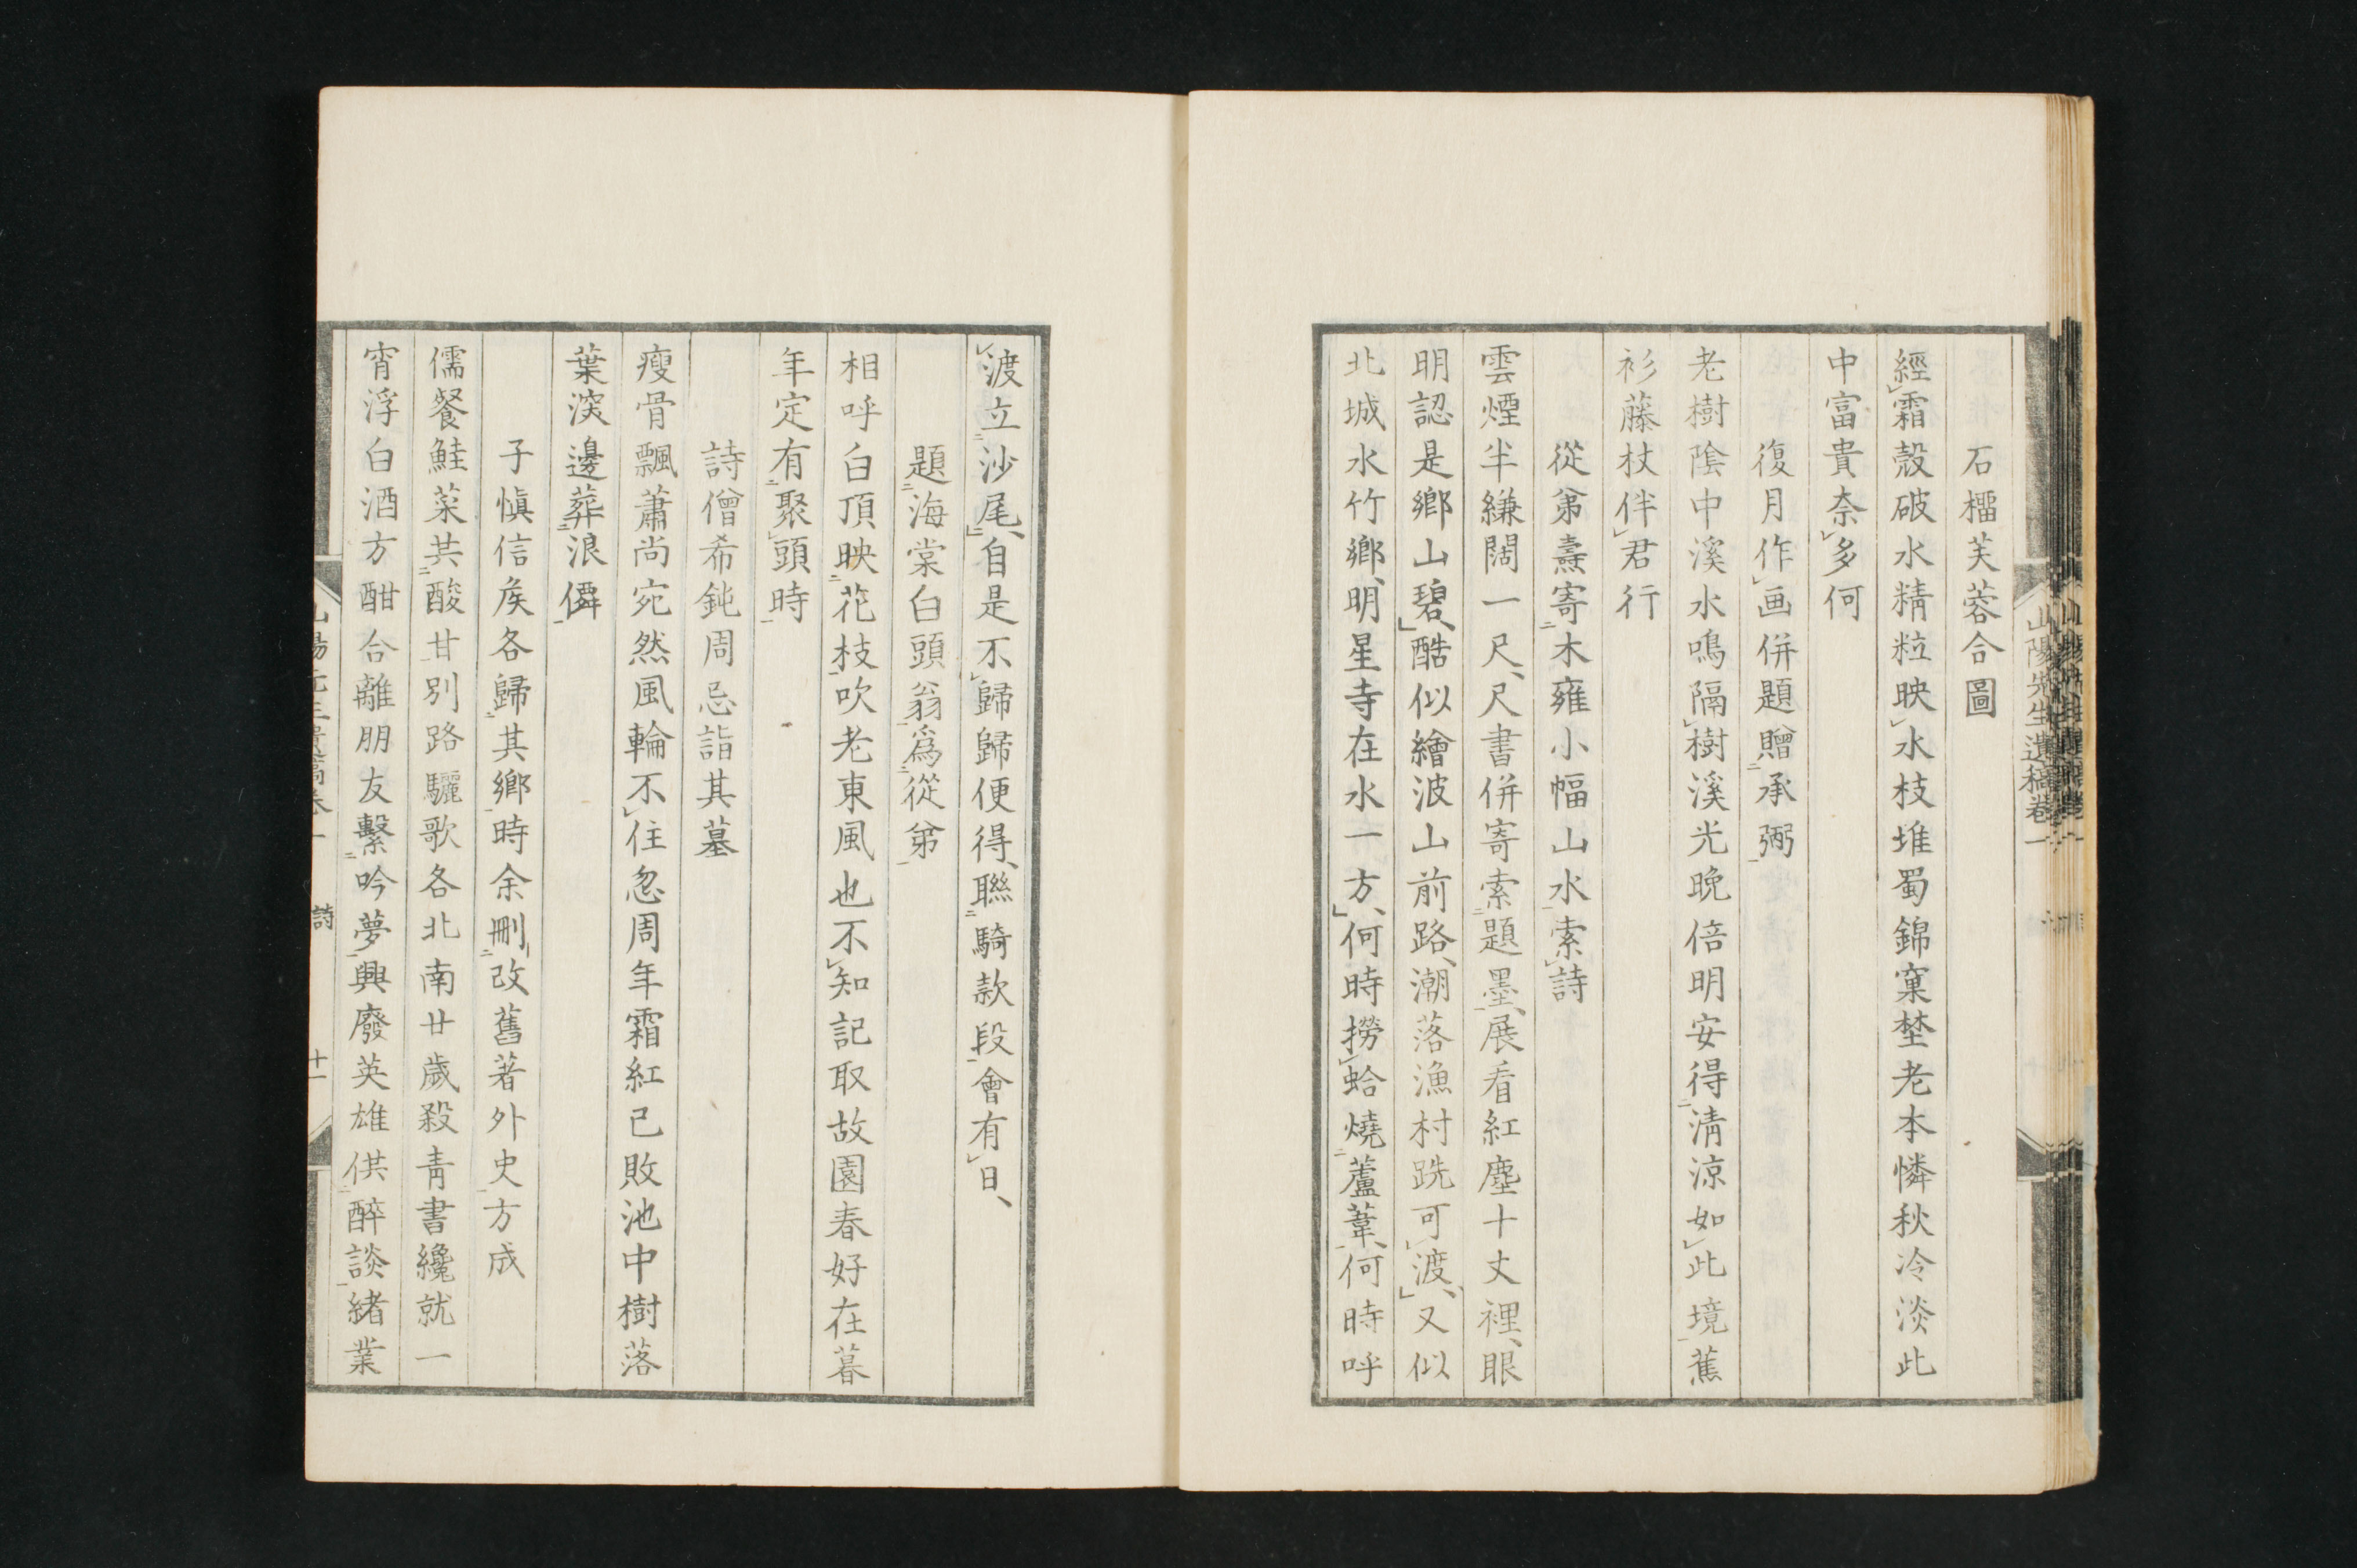 石橊芙蓉合圖
經霜殼破水精粒映水枝堆蜀錦窠埜老本憐秋冷淡此
中富貴奈多何
復月作画併題贈承弼
老樹陰中溪水鳴隔樹溪光晚倍明安得淸涼如此境蕉
衫藤杖伴君行
從弟燾寄木雍小幅山水索詩
雲煙半縑闊一尺、尺書併寄索題墨、展看紅塵十丈裡、眼
明認是鄉山碧、酷似繪波山前路、潮落漁村跣可渡、又似
北城水竹鄉、明星寺在水一方、何時撈蛤燒蘆葦、何時呼
渡立沙尾、自是不歸歸便得、聯騎款段會有日、
題海棠白頭翁爲從弟
相呼白頂映花枝吹老東風也不知記取故園春好在暮
年定有聚頭時
詩僧希鈍周忌詣其墓
瘦骨飄蕭尚宛然風輪不住忽周年霜紅已敗池中樹落
葉深邊葬浪僊
子愼信矦各歸其鄉時余刪改舊著外史方成
儒餐鮭菜共酸甘別路驪歌各北南廿歲殺靑書纔就一
宵浮白酒方酣合離朋友繫吟夢興廢英雄供醉談緖業
山陽先生遺稿卷一
詩
十一